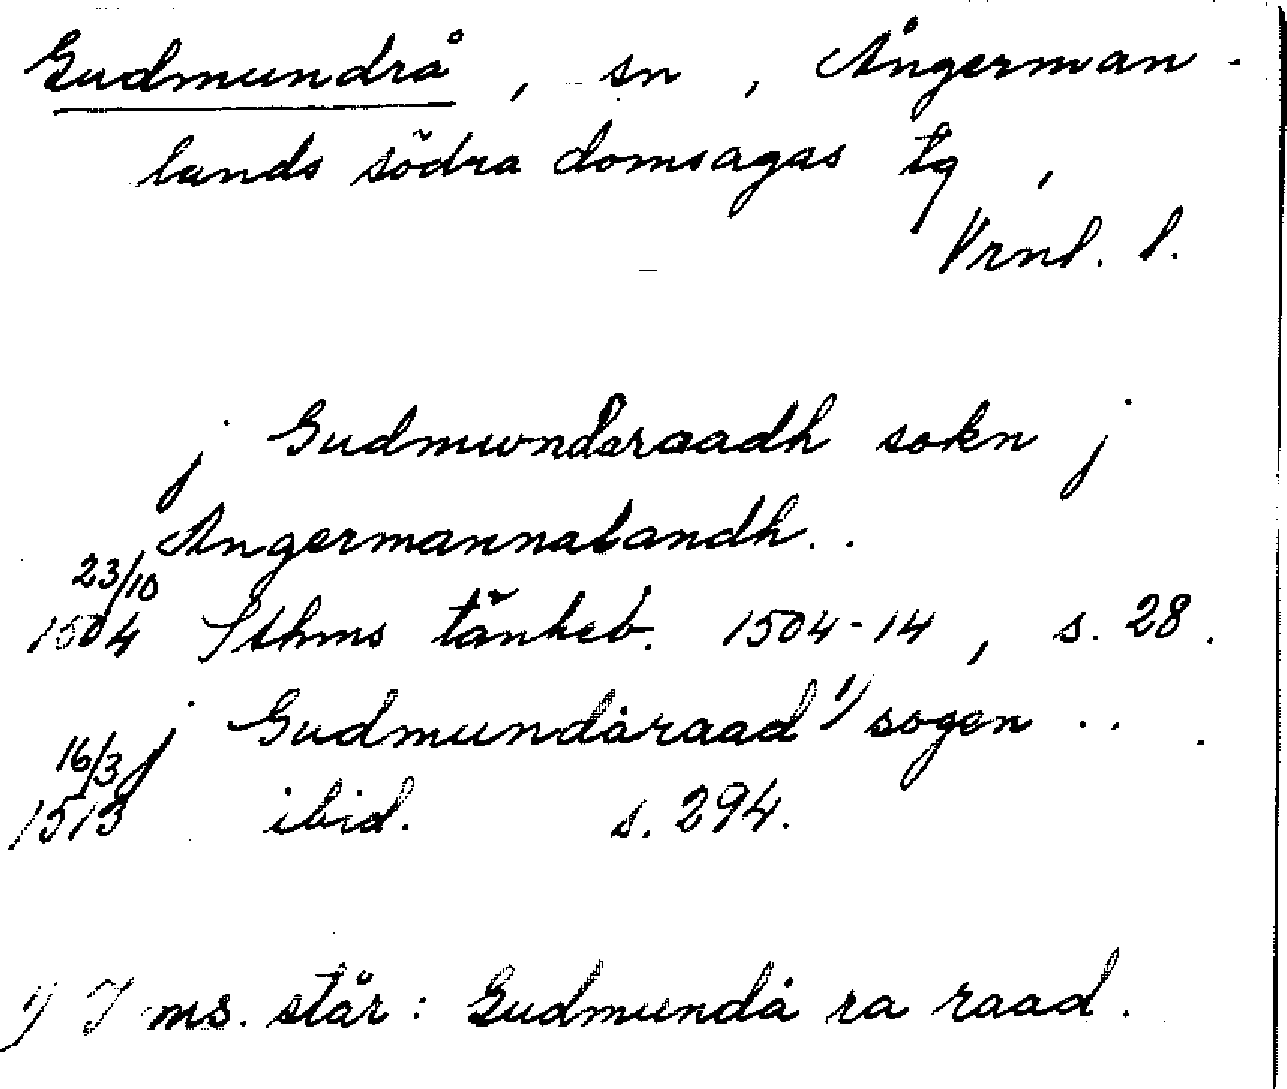 Gudmundrå, sn, Ångerman-
lands södra domsagas tg,
Vrnl. l.
j Gudmunderaadh sokn j
Angermannalandh..
23/10
1504 Sthms tänkeb. 1504-14, s. 28.
j Gudmundåraad 1) sogen ...
16/3
1513 ibid. s. 294.
1) I ms. står: Gudmundå ra raad.